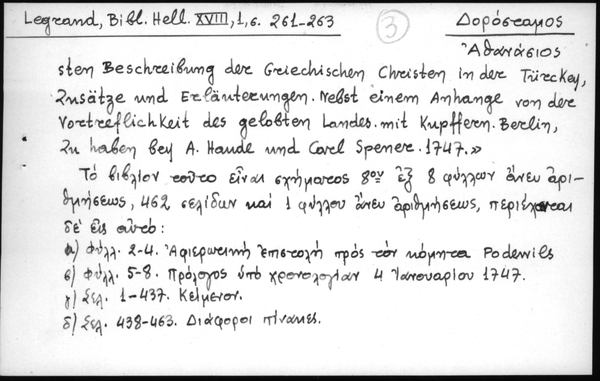 Legrand, Bibl. Hell. XVIII, 1, σ. 261-263
3
Δορόσταμος
Ἀθανάσιος
sten Beschreibung der Griechischen Christen in der Türckey,
Zusätze und Erläuterungen. Nebst einem Anhange von der
Vortreflichkeit des gelobten Landes. mit Kupffern. Berlin,
Zu haben bey A. Haude und Carl Spener. 1747.»
Τὸ βιβλίον τοῦτο εἶναι σχήματος 8ου ἐξ 8 φύλλων ἄνευ ἀρι-
θμήσεως, 462 σελίδων καὶ 1 φύλλου ἄνευ ἀριθμήσεως, περιέχεται
δὲ εἰς αὐτό:
α) Φύλλ. 2-4. Ἀφιερωτικὴ ἐπιστολὴ πρὸς τὸν κόμητα Podewils
β) Φύλλ. 5-8. Πρόλογος ὑπὸ χρονολογίαν 4 Ἰανουαρίου 1747.
γ) Σελ. 1-437. Κείμενον.
δ) Σελ. 438-463. Διάφοροι πίνακες.